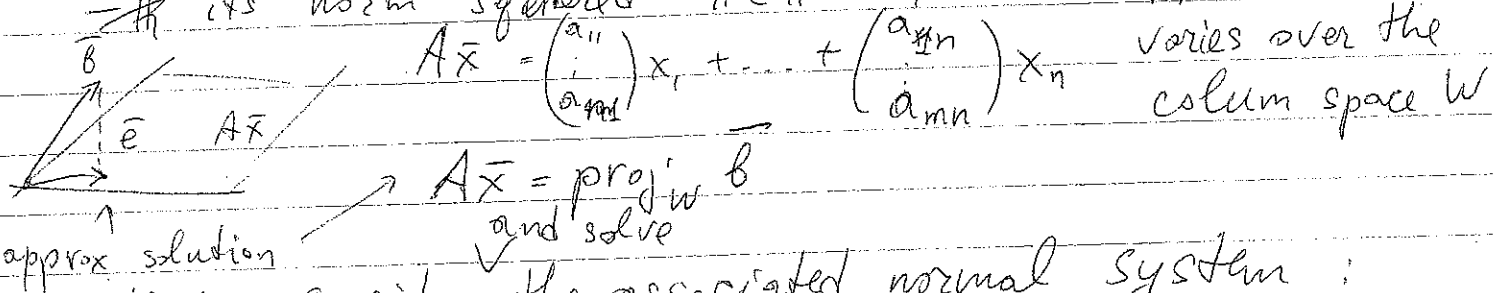 its norm squared
b̄
ē
Ax̄
Ax̄ = (a₁₁ ⋮ aₘ₁) x₁ + ... + (a₁ₙ ⋮ aₘₙ) xₙ varies over the
colum space W
Ax̄ = proj_W b̄
and solve
approx solution
the associated normal system :